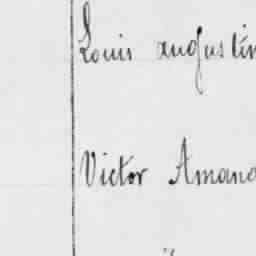 Louis augustin
Victor Amand